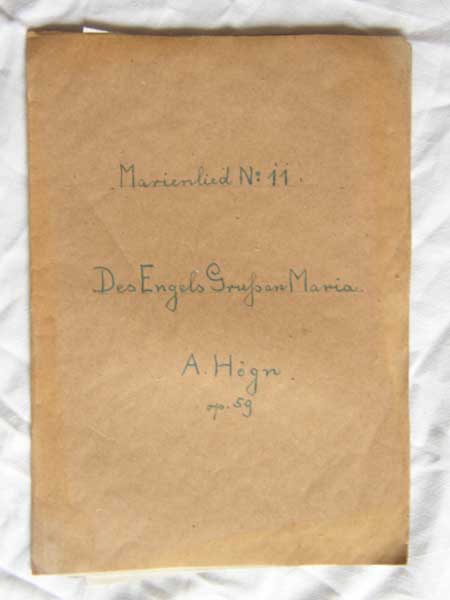 Marienlied No: 11.
Des Engels Gruß an Maria.
A. Högn
op. 59